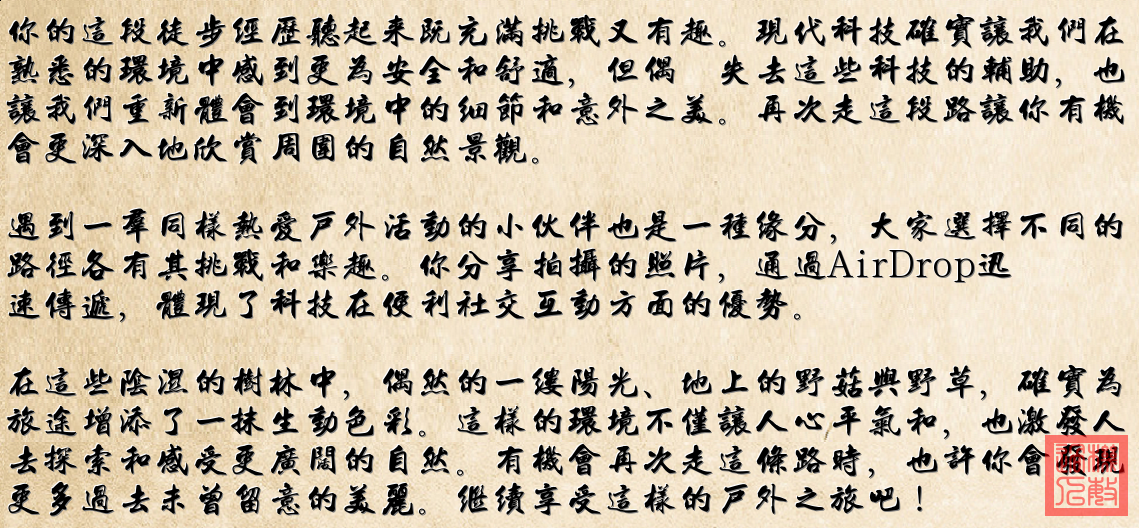 你的這段徒步經歷聽起来既充滿挑戰又有趣。現代科技確實讓我們在
熟悉的環境中感到更為安全和舒適，但偶　失去這些科技的輔助，也
讓我們重新體會到環境中的细節和意外之美。再次走這段路讓你有機
會更深入地欣賞周圍的自然景觀。
遇到一羣同樣熱愛戶外活動的小伙伴也是一種缘分，大家選擇不同的
路徑各有其挑戰和樂趣。你分享拍攝的照片，通過AirDrop迅
速傳遞，體現了科技在便利社交互動方面的優勢。
在這些陰濕的樹林中，偶然的一缕陽光、地上的野菇與野草，確實為
旅途增添了一抹生動色彩。這樣的環境不僅讓人心平氣和，也激發人
去探索和感受更廣闊的自然。有機會再次走這條路時，也許你會發現
更多過去未曾留意的美麗。继續享受這樣的戶外之旅吧！